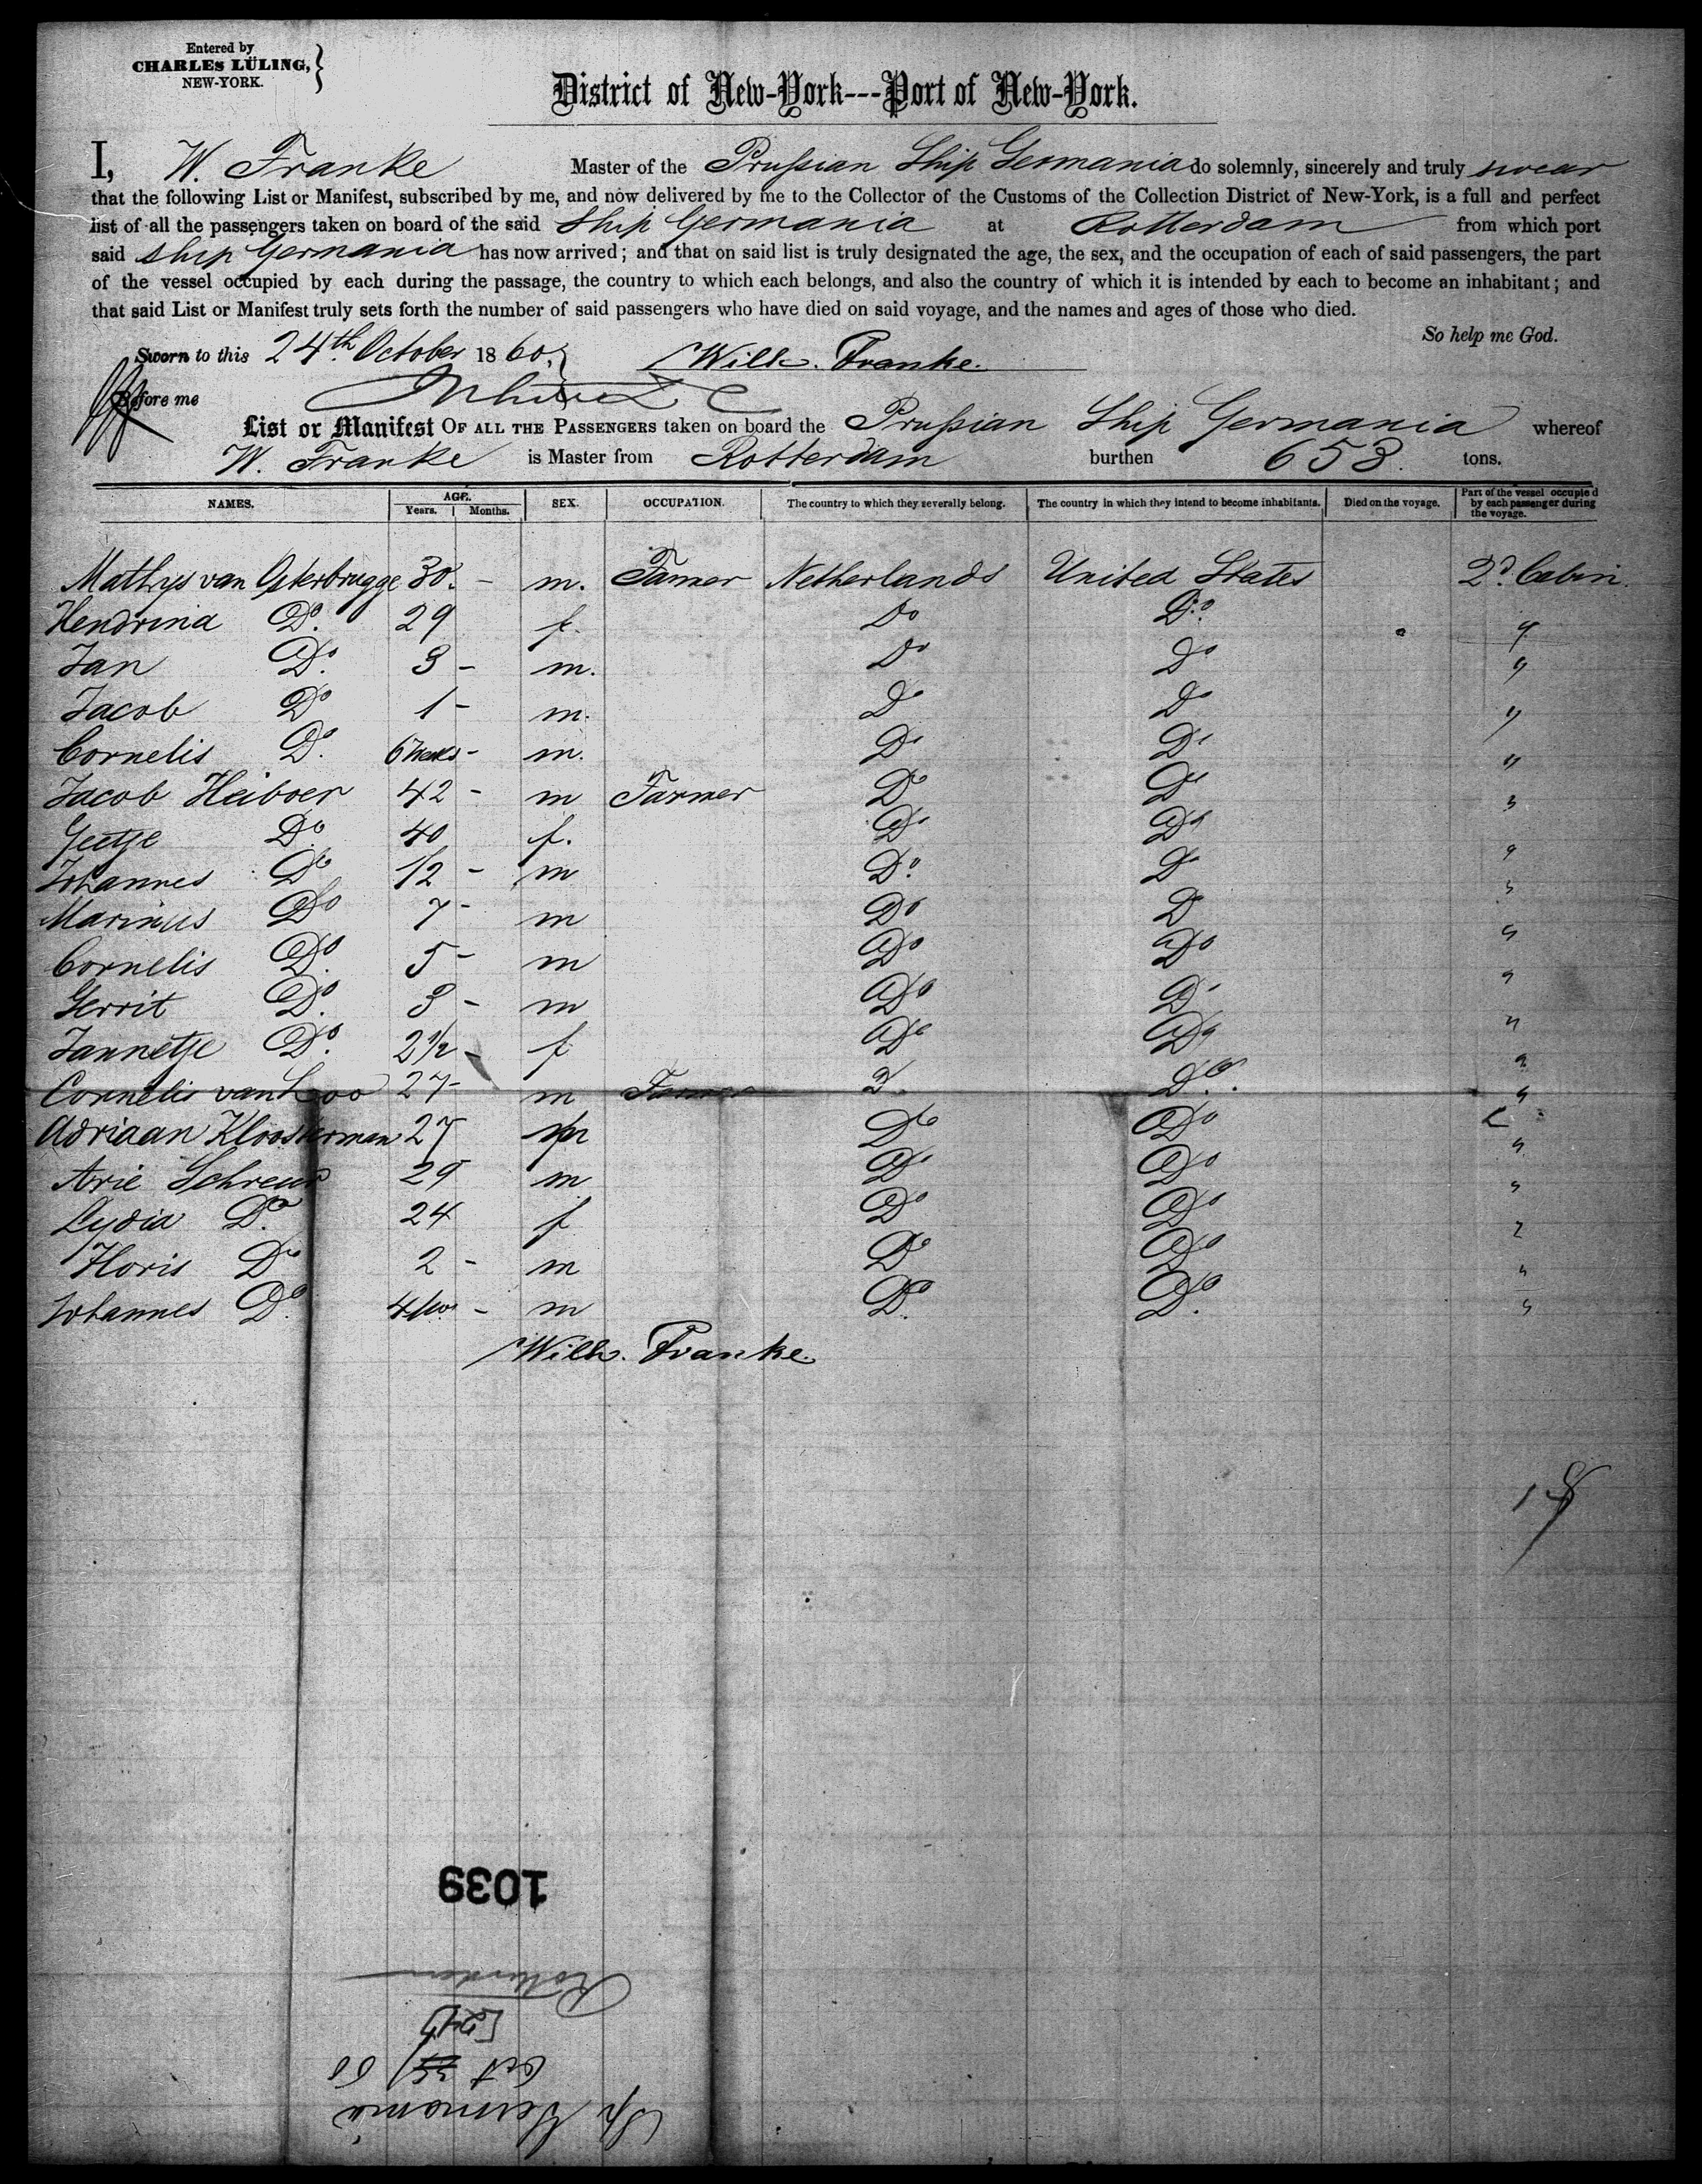 Entered by
CHARLES LÜLING,
NEW-YORK.
District of New-York---Port of New-York.
I, W. Franke Master of the Prussian Ship Germania do solemnly, sincerely and truly swear
that the following List or Manifest, subscribed by me, and now delivered by me to the Collector of the Customs of the Collection District of New-York, is a full and perfect
list of all the passengers taken on board of the said Ship Germania at Rotterdam from which port
said Ship Germania has now arrived; and that on said list is truly designated the age, the sex, and the occupation of each of said passengers, the part
of the vessel occupied by each during the passage, the country to which each belongs, and also the country of which it is intended by each to become an inhabitant; and
that said List or Manifest truly sets forth the number of said passengers who have died on said voyage, and the names and ages of those who died.
So help me God.
Sworn to this 24th October 1860. Wilh. Franke.
Before me
List or Manifest OF ALL THE PASSENGERS taken on board the Prussian Ship Germania whereof
W. Franke is Master from Rotterdam burthen 653. tons.
NAMES. AGE. Years. Months. SEX. OCCUPATION. The country to which they severally belong. The country in which they intend to become inhabitants. Died on the voyage. Part of the vessel occupied by each passenger during the voyage.
Mathys van Osterbrugge 30. - m. Famer Netherlands United States 2d. Cabin.
Hendrina Do. 29 f. Do Do. "
Jan Do. 3 - m. Do Do "
Jacob Do 1 - m. Do Do "
Cornelis Do. 6 Weeks - m. Do Do "
Jacob Heiboer 42 - m Farmer Do Do "
Geetje Do. 40 f. Do Do "
Johannes Do 1/2 - m Do. Do "
Marinus Do 7 - m Do Do "
Cornelis Do. 5 - m Do Do "
Gerrit Do. 3 - m Do Do "
Jannetje Do. 2 1/2 - f Do Do "
Cornelis van Loo 27 - m Famer D Do. "
Adriaan Kloosterman 27 m Do Do "
Arie Schreur 29 m Do Do "
Lydia Do. 24 f Do Do "
Floris Do 2 - m Do Do "
Johannes Do. 4 Mo. - m Do. Do. "
Wilh. Franke.
18
1039
Rotterdam
24
Oct 60
Sh Germania